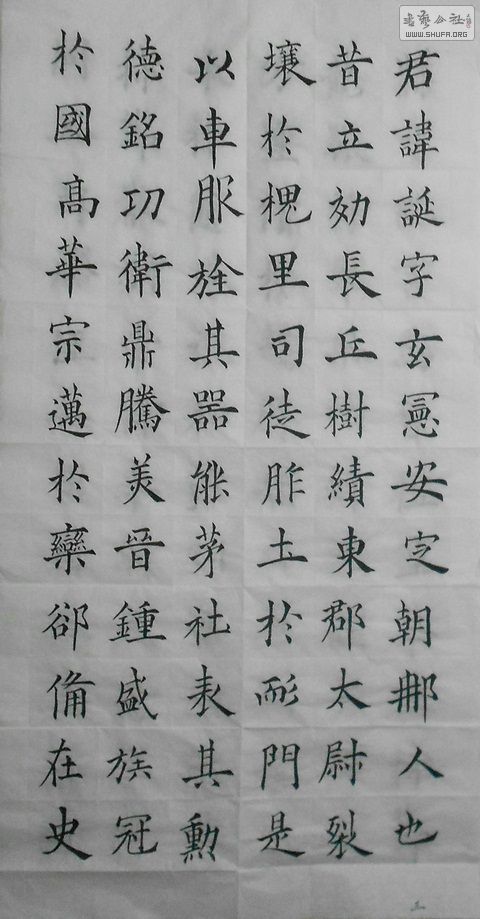 君諱誕字玄憲安定朝那人也
昔立効長丘樹績東郡太尉裂
壤於槐里司徒胙土於耏門是
以車服旌其器能茅社表其勲
德銘功衛鼎騰美晉鍾盛族冠
於國高華宗邁於欒郤俻在史
书艺公社
WWW.SHUFA.ORG